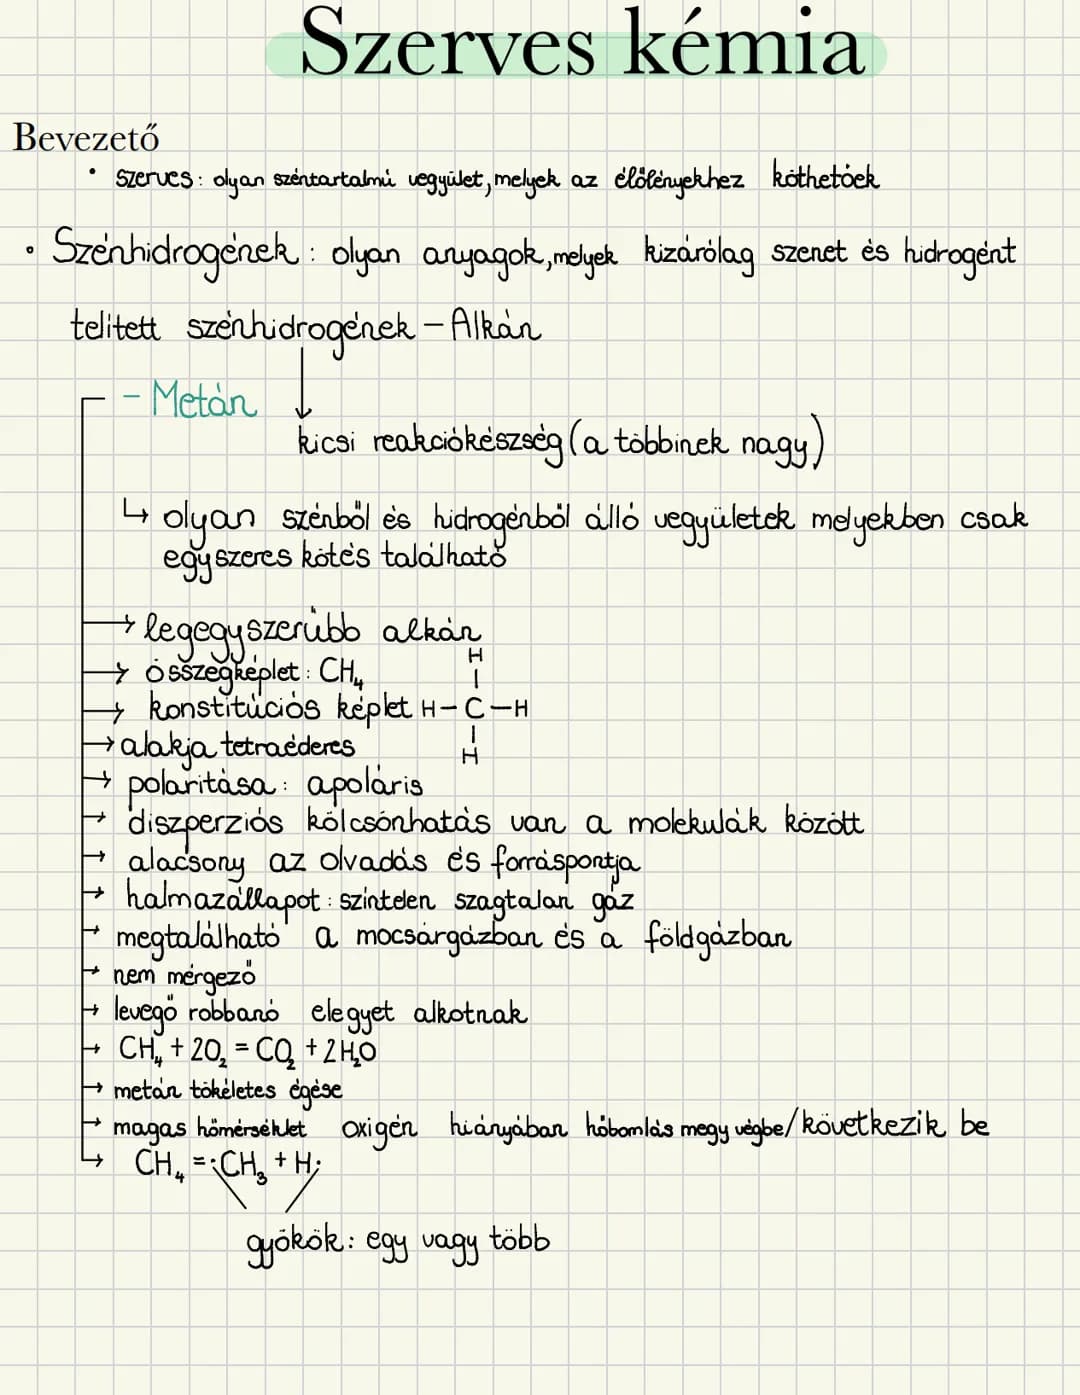 Szerves kémia
Bevezető
• szerves: olyan széntartalmú vegyület, melyek az élőlényekhez köthetőek
• Szénhidrogének: olyan anyagok, melyek kizárólag szenet és hidrogént
telített szénhidrogének – Alkán
– Metán
kicsi reakciókészség (a többinek nagy)
↳ olyan szénből és hidrogénből álló vegyületek melyekben csak
egyszeres kötés található
→ legegyszerűbb alkán
→ összegképlet: CH₄
H
|
→ konstitúciós képlet H–C–H
|
H
→ alakja tetraéderes
→ polaritása: apoláris
→ diszperziós kölcsönhatás van a molekulák között
→ alacsony az olvadás és forráspontja
→ halmazállapot: színtelen szagtalan gáz
→ megtalálható a mocsárgázban és a földgázban
→ nem mérgező
→ levegő robbanó elegyet alkotnak
→ CH₄ + 2O₂ = CO₂ + 2H₂O
→ metán tökéletes égése
→ magas hőmérséklet oxigén hiányában hőbomlás megy végbe/következik be
↳ CH₄ = ;CH₃ + H;
gyökök: egy vagy több